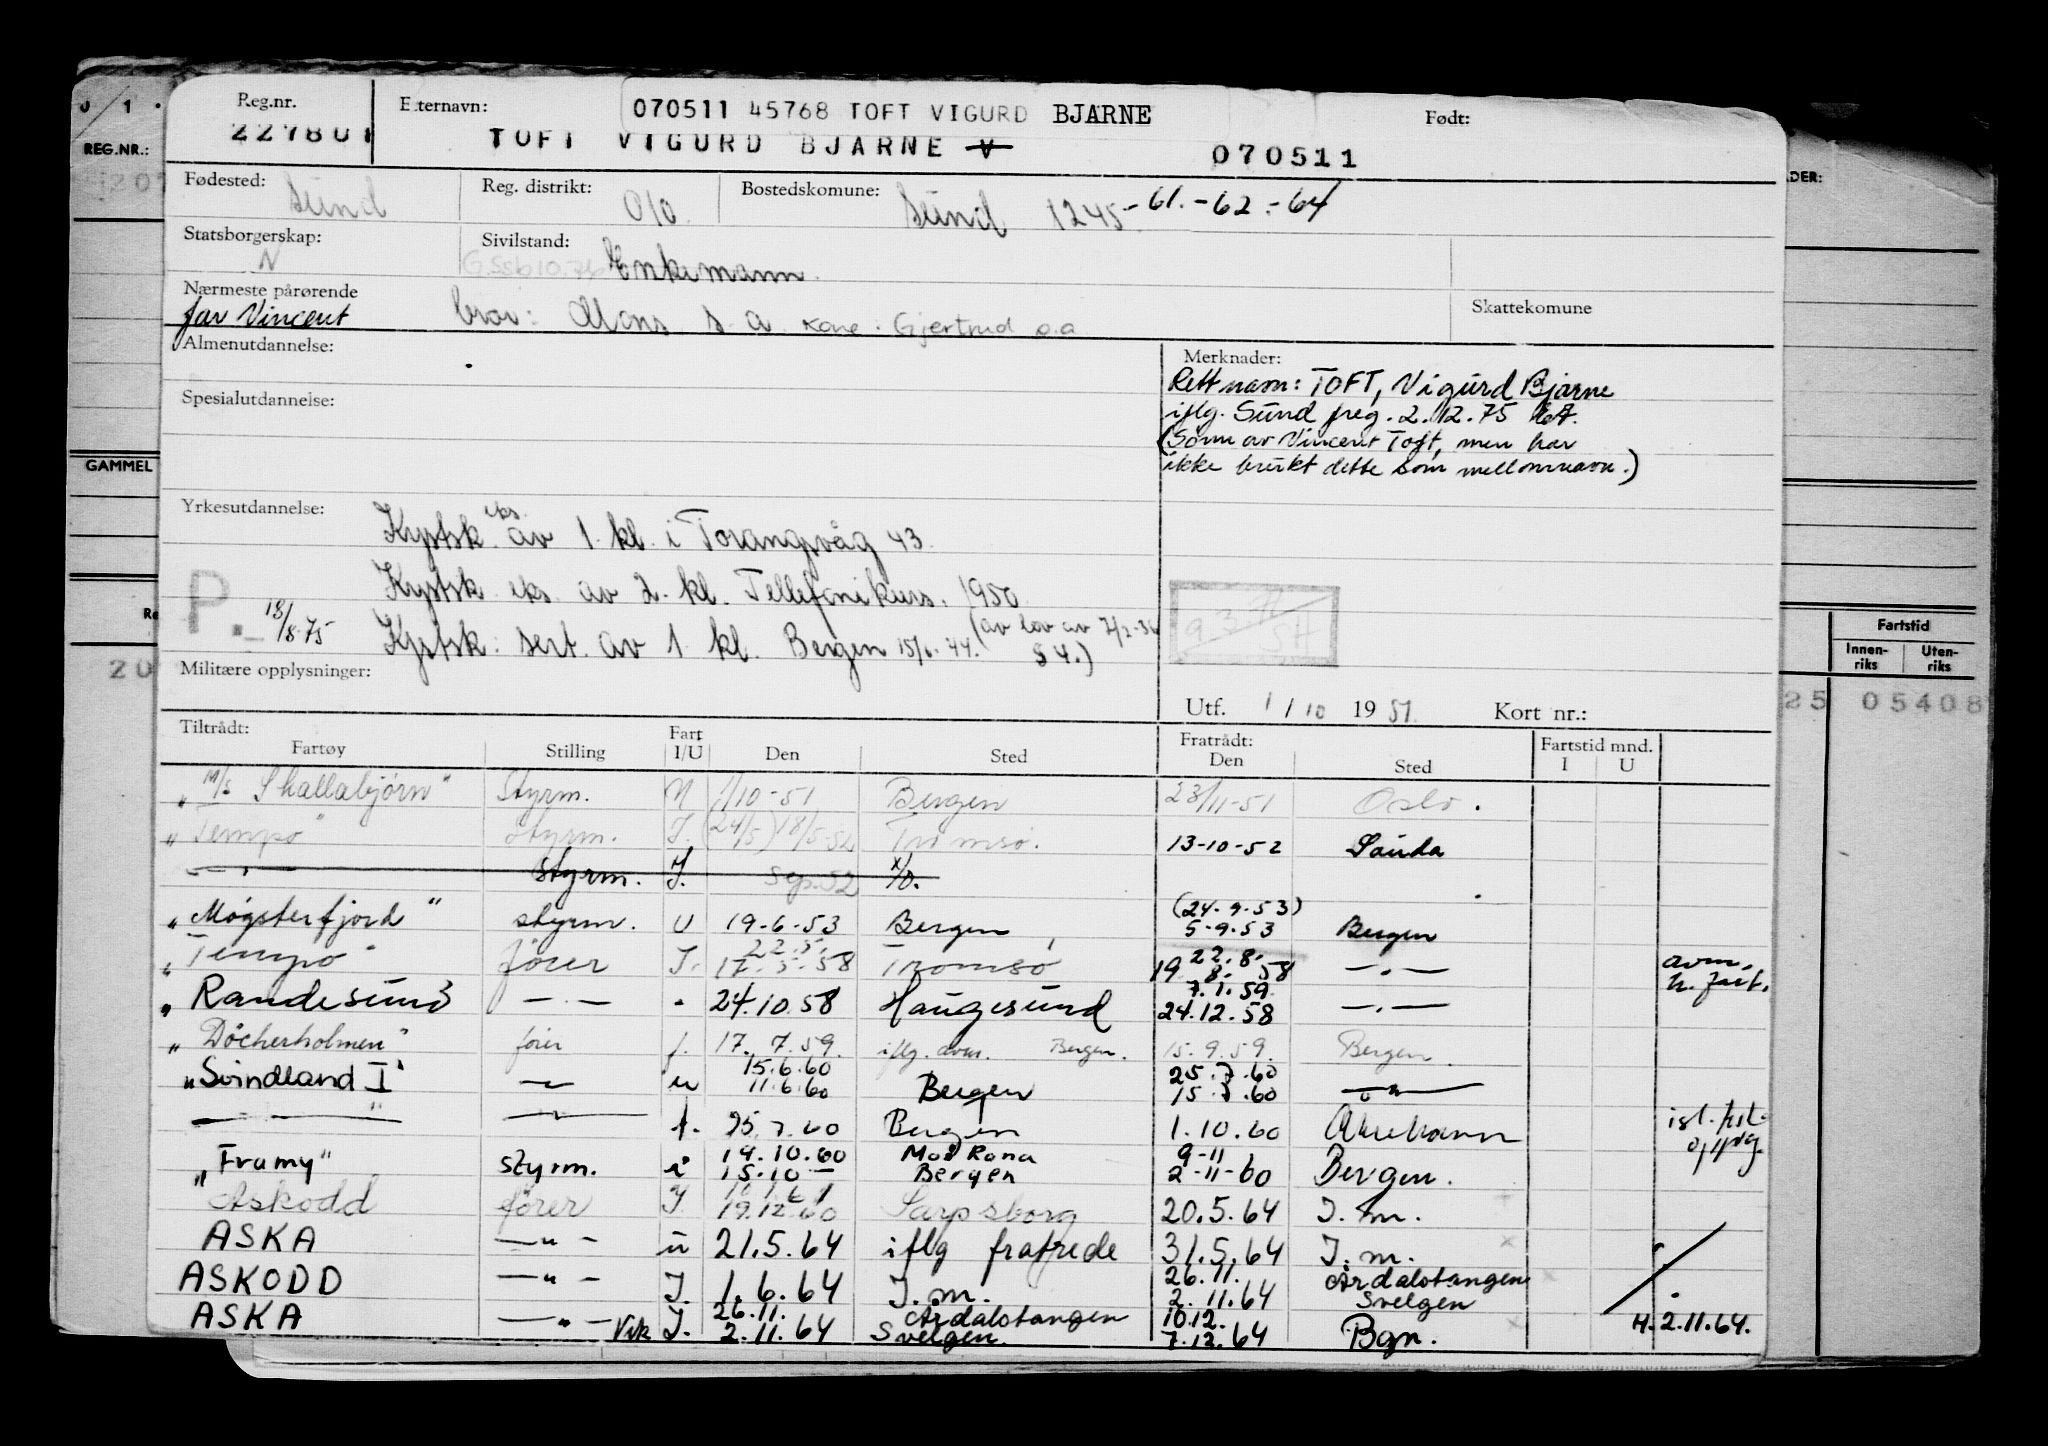 Reg.nr. Etternavn: 070511 45768 TOFT VIGURD BJARNE Født:
227801 TOFT VIGURD BJARNE V 070511
Fødested: Sund Reg. distrikt: 010 Bostedskomune: Sund 1245 -61.-62.-64
Statsborgerskap: N Sivilstand: Enkemann.
Nærmeste pårørende Skattekomune
far Vincent bror: Mons s.a. Kone: Gjertrud o.a.
Almenutdannelse: Merknader:
Rett navn: TOFT, Vigurd Bjarne
Spesialutdannelse: iflg. Sund freg. 2.12.75
(Sønn av Vincent Toft, men har
ikke brukt dette som mellomnavn.)
Yrkesutdannelse: Kystsk. eks. av 1. kl. i Torangsvåg 43.
Kystsk. eks. av 2. kl. Tellefonikurs. 1950
P. 18/8.75 Kystsk: sert. av 1 kl. Bergen 15/6.44. (av lov av 7/2-36 § 4.)
Militære opplysninger:
Utf. 1/10 1951 Kort nr.:
Tiltrådt: Fart Fratrådt: Fartstid mnd.
Fartøy Stilling I/U Den Sted Den Sted I U
„M/s Skallabjørn" Styrm. U 1/10-51 Bergen 23/11-51 Oslo.
„Tempo" Styrm. I. (24/5) 18/5-52 Tromsø. 13-10-52 Sauda
— " — Styrm. I. Sep. 52
„Møgsterfjord" styrm. U 19-6-53 Bergen (24-9-53) 5-9-53 Bergen
„Tempo" fører I. 22.5. 17.5.58 Tromsø 22.8. 19.8.58 — " — avm. h. fart.
„Randesund — " — " 24.10.58 Haugesund 7.1.59 24.12.58 — " —
„Döcherholmen" fører f. 17.7.59. iflg. avm. Bergen. 15.9.59. Bergen
„Svindland I" — " — u 15.6.60 11.6.60 Bergen 25.7.60 15.7.60 — " —
— " — — " — f. 25.7.60 Bergen 1.10.60 Åkrehamn
„Framy" styrm. i 14.10.60 15.10 — Mo i Rana Bergen 9-11 2-11-60 Bergen.
Askodd fører I. 19.12.60 Sarpsborg 20.5.64 I. m.
ASKA — " — u 21.5.64 iflg frafrede 31.5.64 I. m.
ASKODD — " — I. 1.6.64 I. m. 26.11. 2.11.64 Årdalstangen Svelgen
ASKA — " — Vik I. 26.11. 2.11.64 Årdalstangen Svelgen. 10.12. 7.12.64 Bgn. H. 2.11.64.
REG.NR.:
GAMMEL
Fartstid
Innenriks Utenriks
25 05408